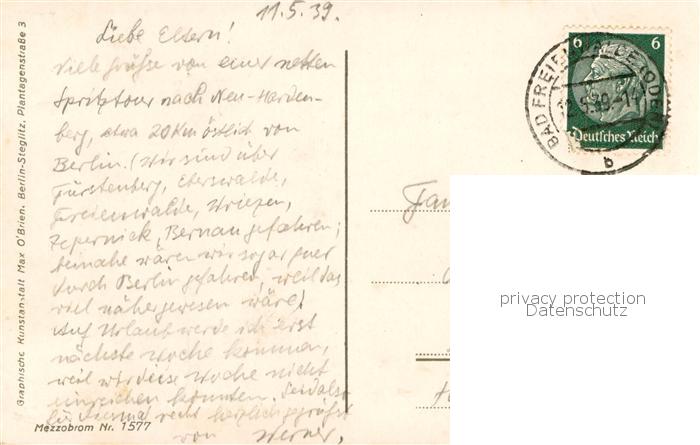 11.5.39.
Liebe Eltern!
Viele Grüße von einer netten
Spritztour nach Neu-Harden-
berg, etwa 20 Km östlich von
Berlin. (Wir sind über
Fürstenberg, Eberswalde,
Freienwalde, Wriezen,
Zepernick, Bernau gefahren;
beinahe wären wir sogar quer
durch Berlin gefahren, weil das
viel näher gewesen wäre)
Auf Urlaub werde ich erst
nächste Woche kommen,
weil wir diese Woche nicht
einreichen konnten. Seid also
für diesmal recht herzlich gegrüßt
von Werner.
Mezzobrom Nr. 1577
Graphische Kunstanstalt Max O'Brien, Berlin-Steglitz, Plantagenstraße 3
6 6
Deutsches Reich
BAD FREIENWALDE (ODER)
b
Fam
privacy protection
Datenschutz